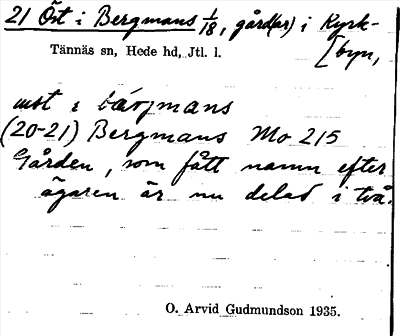 21 Öst i Bergmans 1/18, gård(ar) i Kyrk-
[byn,
Tännäs sn, Hede hd, Jtl. l.
(20-21) Bergmans Mo 215
Gården, som fått namn efter
ägaren är nu delad i två.
O. Arvid Gudmundson 1935.